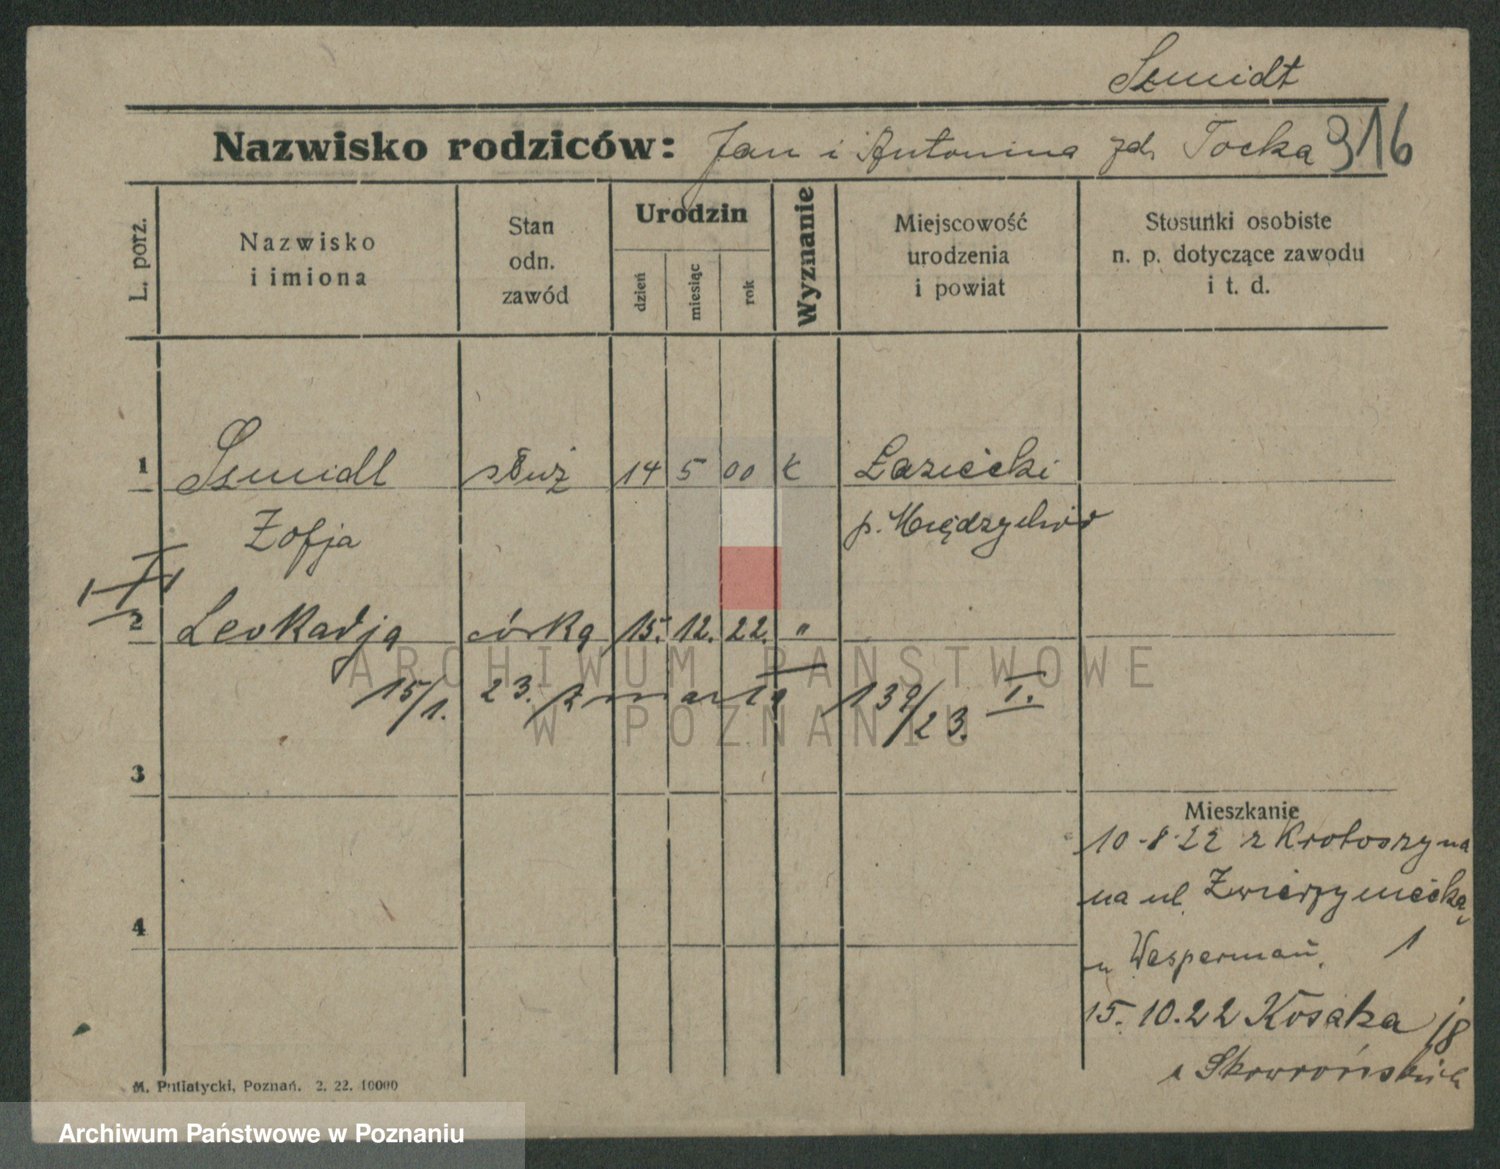 Szmidt
Nazwisko rodziców: Jan i Antonina zd. Tocka 316
L. porz.
Nazwisko i imiona
Stan odn. zawód
Urodzin
dzień miesiąc rok
Wyznanie
Miejscowość urodzenia i powiat
Stosunki osobiste n. p. dotyczące zawodu i t. d.
1 Szmidt służ 14 5 00 k Łaziecki
Zofja p. Międzychód
2 Leokadja córka 15. 12. 22. "
15/1. 23. zmarła 139/23. I.
3
Mieszkanie
10-8-22 z Krotoszyna
na ul. Zwierzyniecką
u Wesperman. 1
4
15. 10. 22 Kosaka 18
Skowrońskich
M. Putiatycki, Poznań. 2. 22. 10000
ARCHIWUM PAŃSTWOWE
W POZNANIU
Archiwum Państwowe w Poznaniu